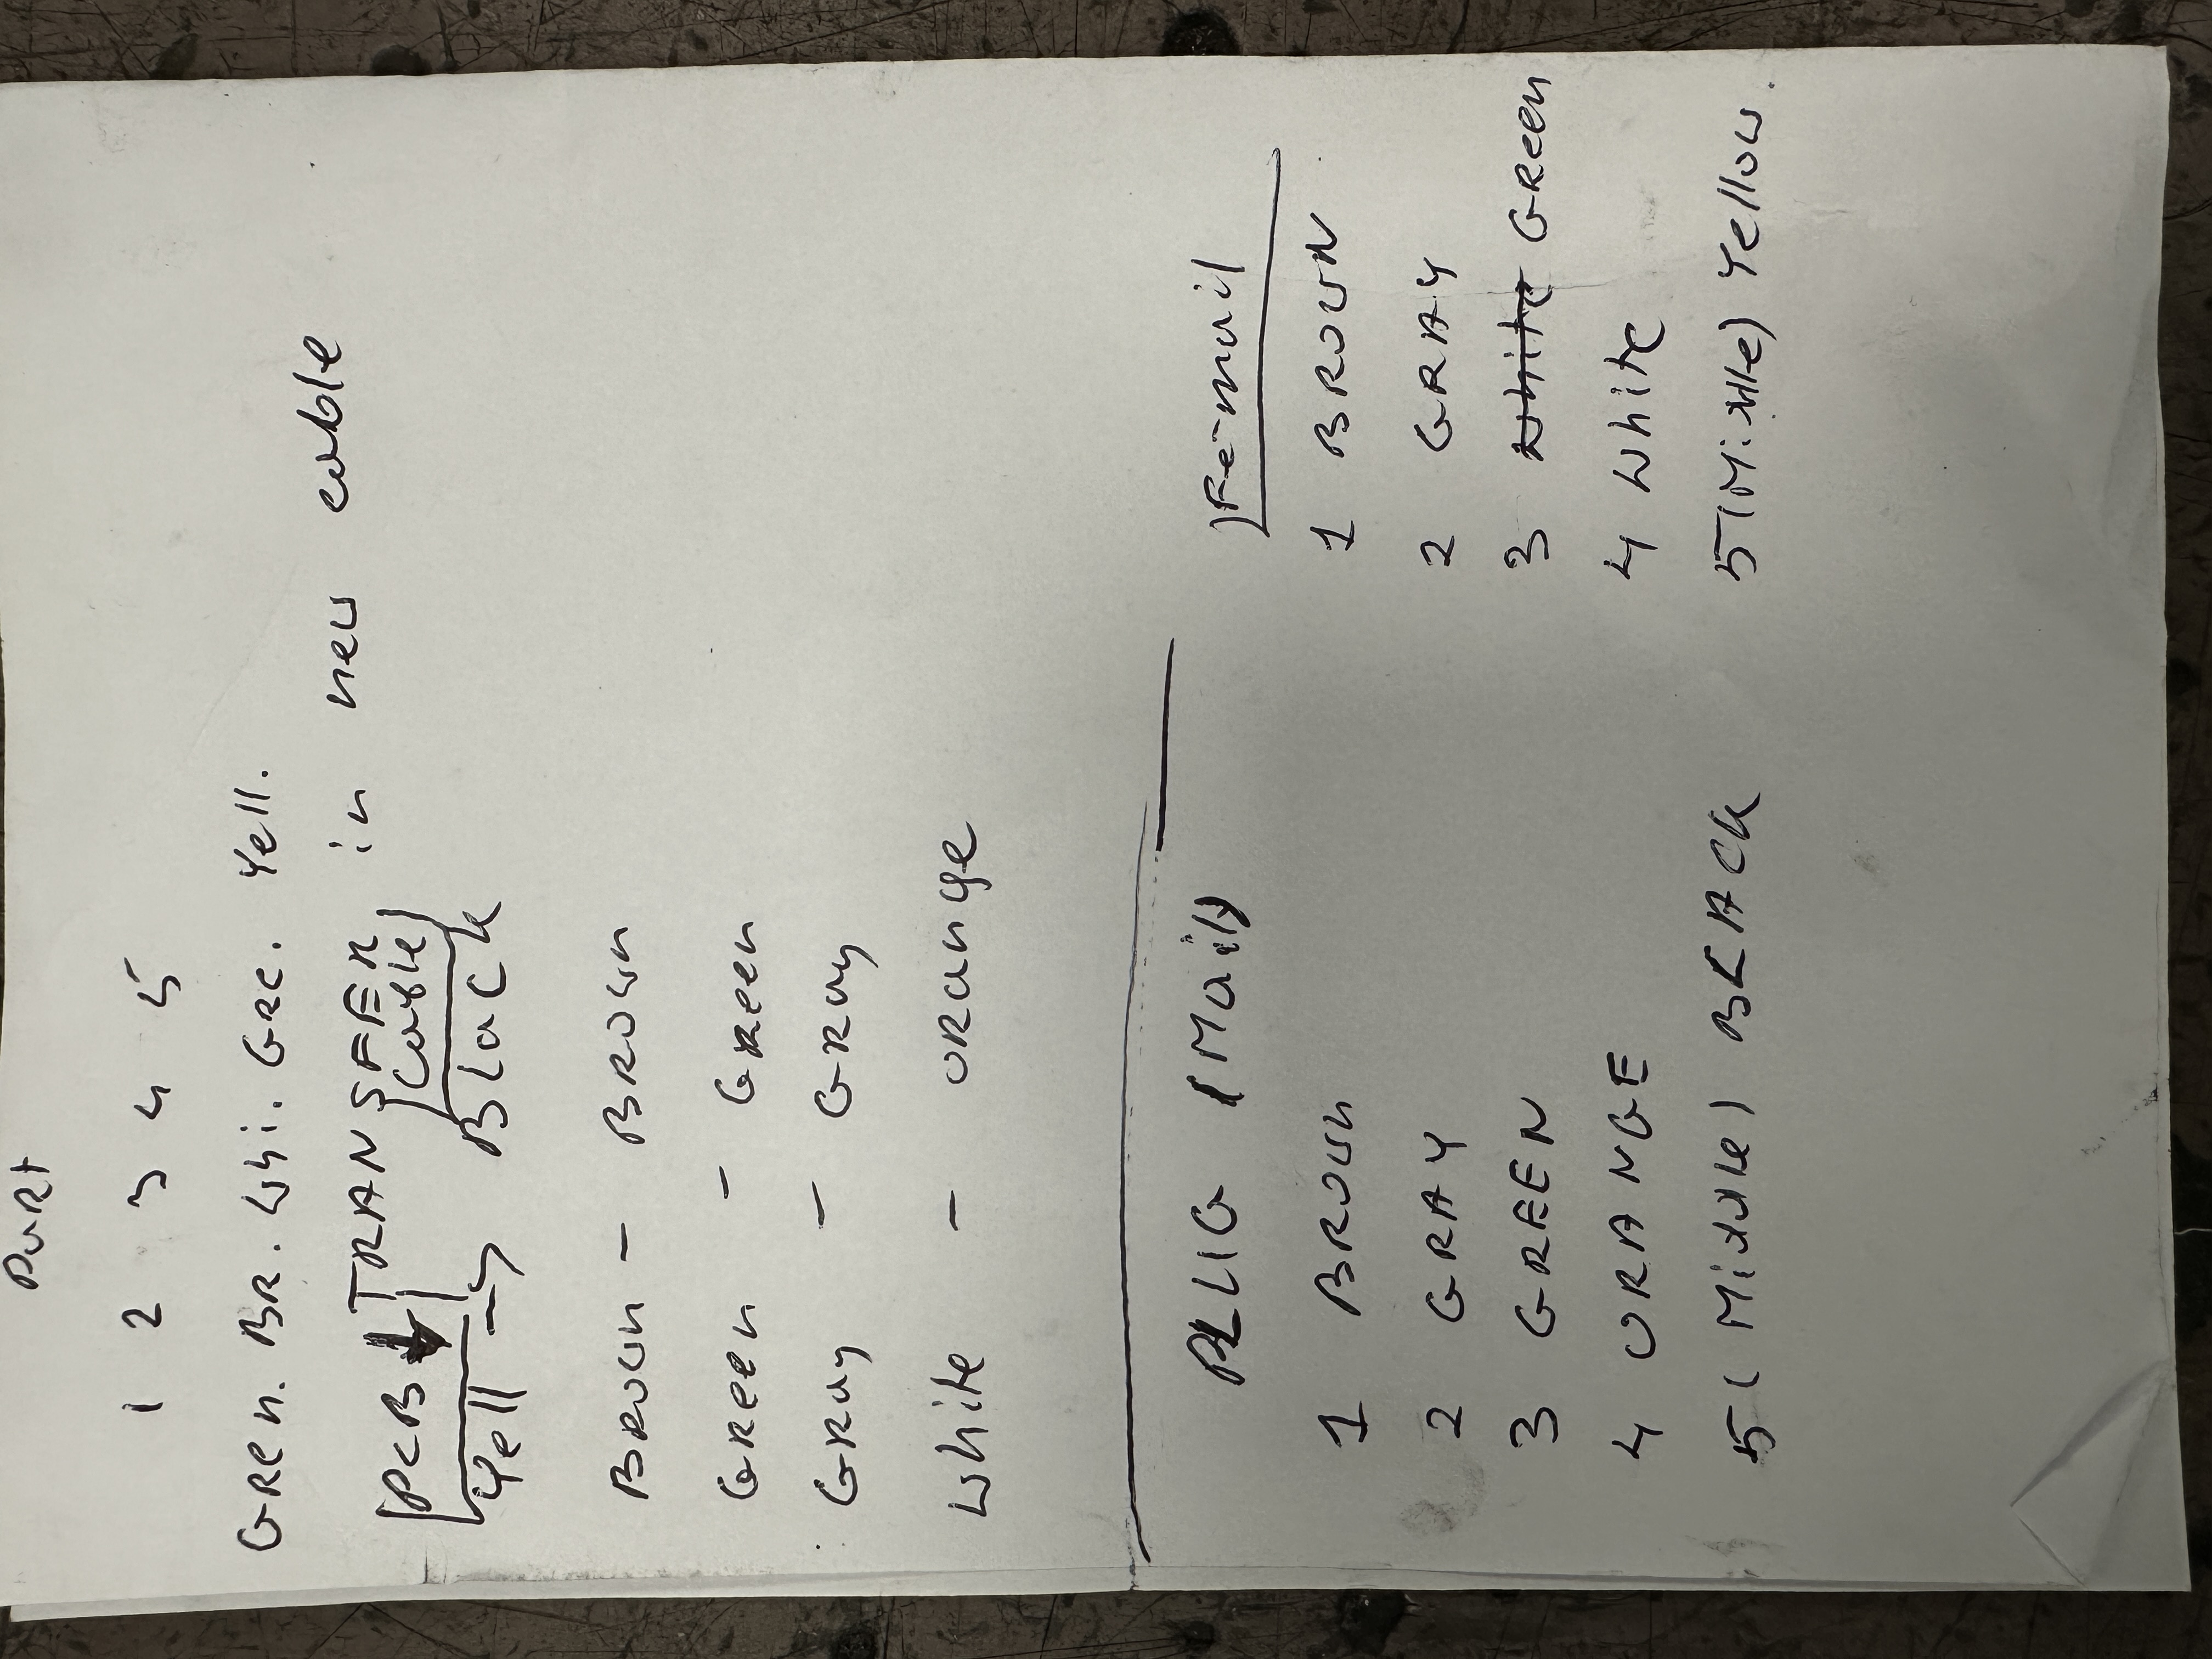 Port
1 2 3 4 5
GREN. BR. Whi. GRE. Yell.
PCB TRANSFER in new cable
Cable
Yell --> Black
Brown - Brown
Green - Green
Gray - Gray
White - orange
PLUG (Mail)
1 Brown
2 GRAY
3 GREEN
4 ORANGE
5 (Middle) BLACK
Femail
1 BROWN
2 GRAY
3 white Green
4 White
5 (Middle) Yellow.